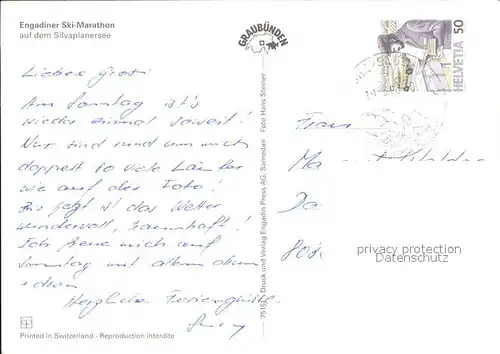 Engadiner Ski-Marathon
auf dem Silvaplanersee
GRAUBÜNDEN
HELVETIA 50
Liebes Grosi
Am Sonntag ist's
wieder einmal soweit!
Nur sind rund um mich
doppelt so viele Läufer
wie auf der Foto!
Bis jetzt ist das Wetter
wundervoll, traumhaft!
Ich freue mich auf
Sonntag mit allem drum
+ dran
Herzliche Feriengrüsse
Frau
75153 Druck und Verlag Engadin Press AG, Samedan Foto Hans Steiner
privacy protection
Datenschutz
Printed in Switzerland - Reproduction interdite